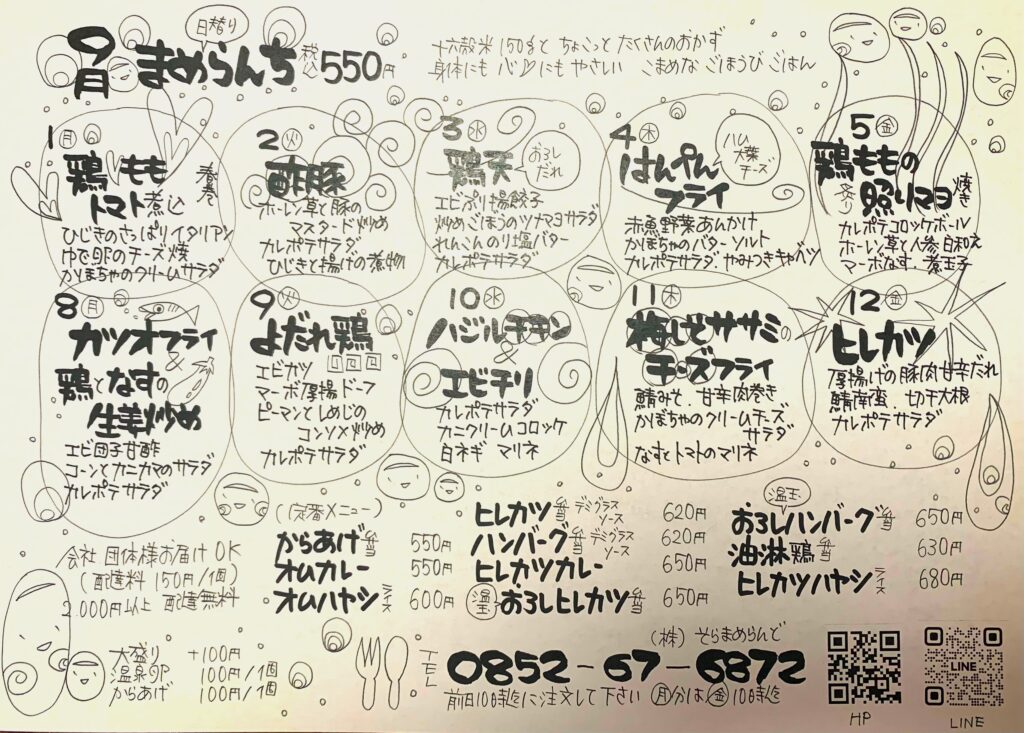 9月
日替り
まめらんち 税込 550円
十六穀米150gと ちょこっと たくさんのおかず
身体にも 心にも やさしい こまめな ごほうび ごはん
1 月
鶏もも
トマト煮込
春巻
ひじきのさっぱりイタリアン
ゆで卵のチーズ焼
かぼちゃのクリームサラダ
2 火
酢豚
ホーレン草と豚の
マスタード炒め
カレポテサラダ
ひじきと揚げの煮物
3 水
鶏天
おろしだれ
エビぷり揚餃子
炒めごぼうのツナマヨサラダ
れんこんのり塩バター
カレポテサラダ
4 木
はんぺん
フライ
ハム
大葉
チーズ
赤魚野菜あんかけ
かぼちゃのバターソルト
カレポテサラダ.やみつきキャベツ
5 金
鶏ももの
炙り 照りマヨ 焼き
カレポテコロッケボール
ホーレン草と人参白和え
マーボなす.煮玉子
8 月
カツオフライ
&
鶏となすの
生姜炒め
エビ団子甘酢
コーンとカニカマのサラダ
カレポテサラダ
9 火
よだれ鶏
エビカツ
マーボ厚揚ドーフ
ピーマンとしめじの
コンソメ炒め
カレポテサラダ
10 水
バジルチキン
&
エビチリ
カレポテサラダ
カニクリームコロッケ
白ネギ マリネ
11 木
梅しそササミの
チーズフライ
鯖みそ.甘辛肉巻き
かぼちゃのクリームチーズ
サラダ
なすとトマトのマリネ
12 金
ヒレカツ
厚揚げの豚肉甘辛だれ
鯖南蛮.切干大根
カレポテサラダ
会社 団体様お届けOK
(配達料 150円/1個)
2.000円以上 配達無料
大盛り +100円
温泉卵 100円/1個
からあげ 100円/1個
(定番メニュー)
からあげ弁当 550円
オムカレー 550円
オムハヤシライス 600円
ヒレカツ弁当 デミグラスソース 620円
ハンバーグ弁当 デミグラスソース 620円
ヒレカツカレー 650円
温玉 おろしヒレカツ弁当 650円
温玉
おろしハンバーグ弁当 650円
油淋鶏弁当 630円
ヒレカツハヤシライス 680円
(株)そらまめらんど
TEL 0852-67-6872
前日10時迄に注文して下さい 月分は金10時迄
HP
LINE
LINE